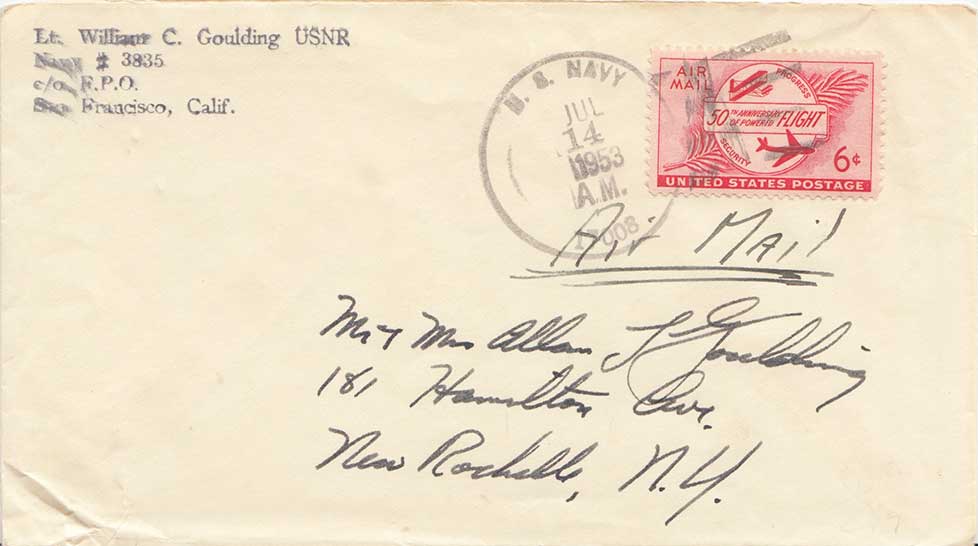 Lt. William C. Goulding USNR
Navy # 3835
c/o F.P.O.
San Francisco, Calif.
U. S. NAVY
JUL
14
1953
A.M.
17008
AIR MAIL
PROGRESS
50TH ANNIVERSARY OF POWERED FLIGHT
SECURITY
6¢
UNITED STATES POSTAGE
Air Mail
Mr & Mrs Allan L Goulding
181 Hamilton Ave.
New Rochelle, N.Y.